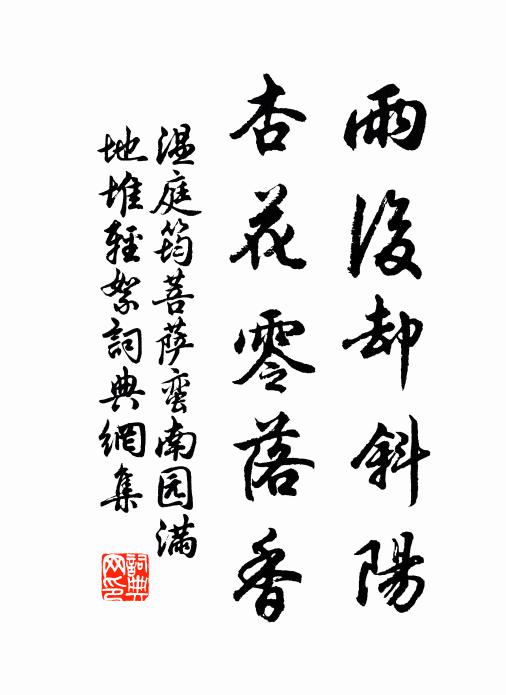 雨後却斜陽
杏花零落香
温庭筠菩萨蛮南园滿
地堆輕絮詞典網集
詞典
网印